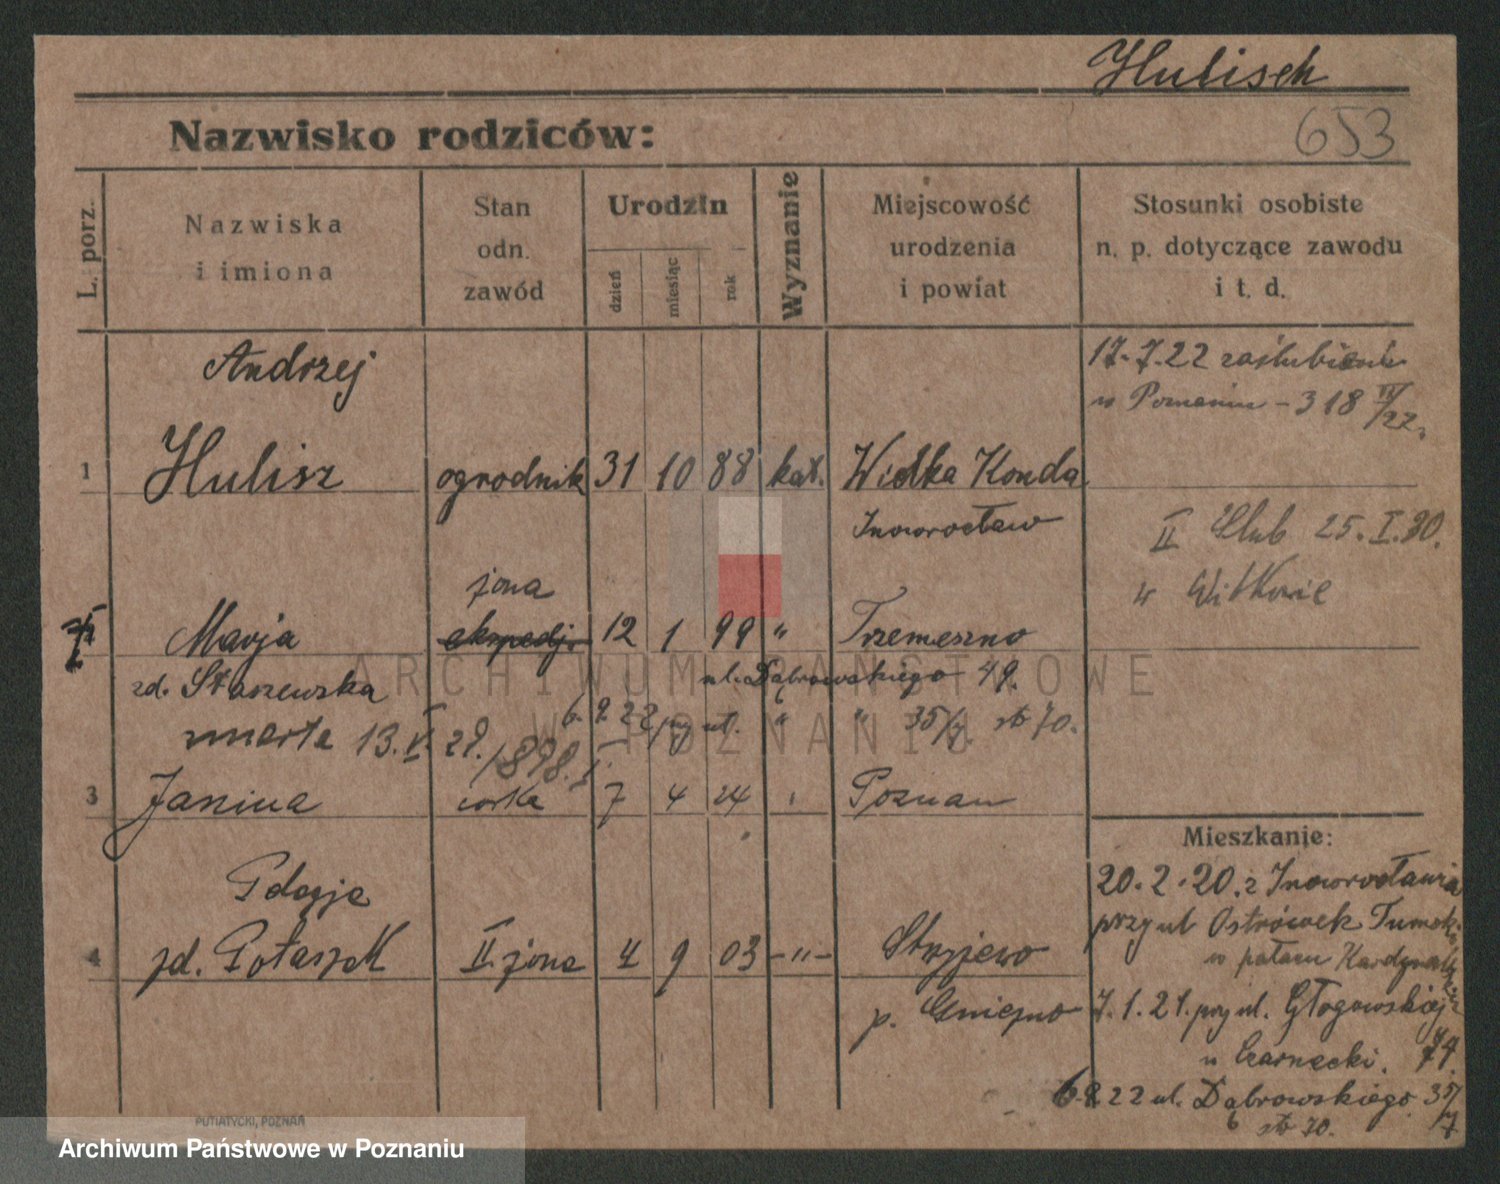 Hulisch
653
Nazwisko rodziców:
L. porz.
Nazwiska
i imiona
Stan
odn.
zawód
Urodzin
dzień
miesiąc
rok
Wyznanie
Miejscowość
urodzenia
i powiat
Stosunki osobiste
n. p. dotyczące zawodu
i t. d.
Andrzej
17.7.22 zaślubieni
w Poznaniu - 318
1 Hulisz ogrodnik 31 10 88 kat. Wielka Konda
Inowrocław
II Ślub 25.I.30.
w Witkowie
żona
Marja ekspedj. 12 1 99 " Trzemeszno
zd. Staszewska ul. Dąbrowskiego 49.
umarła 13. 29. /898.
6. 22 przy ul. " " 35/7. str 70.
3 Janina córka 7 4 24 Poznań
Mieszkanie:
20.2.20. z Inowrocławia
przy ul Ostrówek
w pałacu
Pelagja
4 zd. Potaszak II. żona 4 9 03 -"- Strzyżewo
p. Gniezno
7.1.21. przy ul. Głogowskiej
u Czarnecki. 74.
6.8.22 ul. Dąbrowskiego 35/7
str 70.
PUTIATYCKI, POZNAŃ
ARCHIWUM PAŃSTWOWE
W POZNANIU
Archiwum Państwowe w Poznaniu